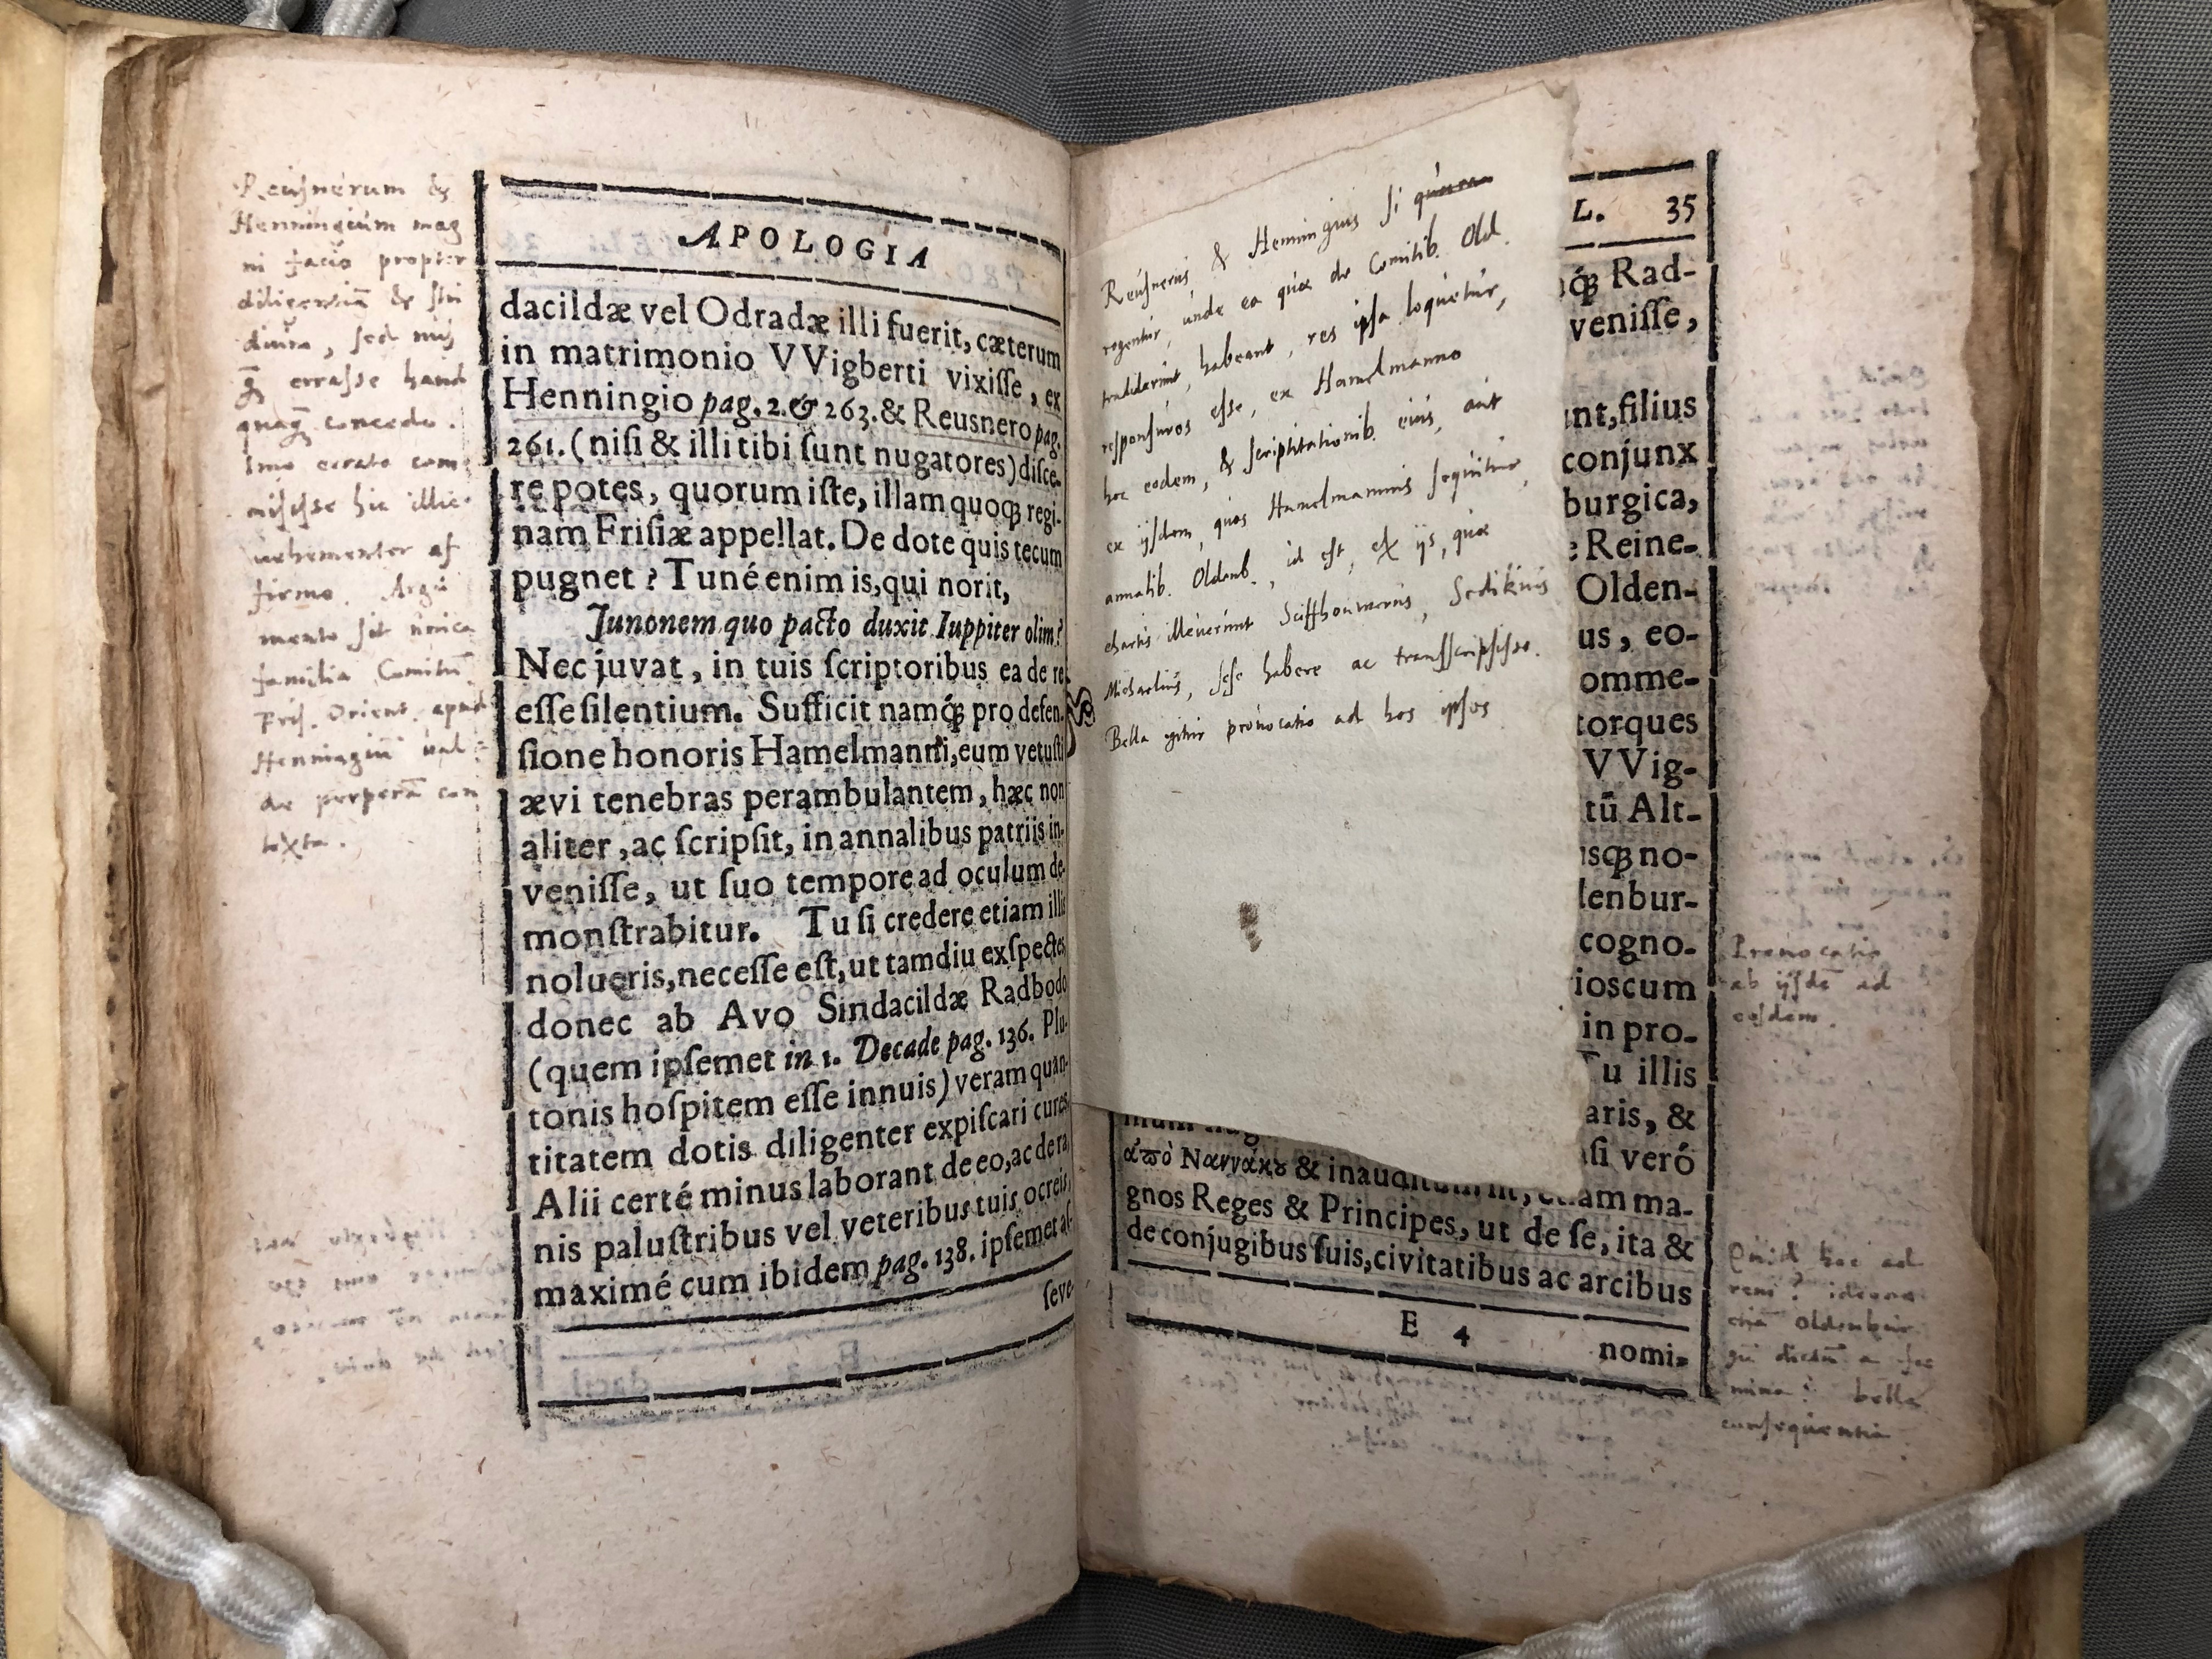 Reusnerum &
Henningium mag
ni facio propter
diligentiã & stu
dium, sed
errasse haud
quaq̃ concedo.
Imo errata com
misisse hic illic
uehementer af
firmo. Argu
mento sit unica
familia Comitũ
Fris. Orient. apud
Henningiũ ual
de perperã con
texta.
APOLOGIA
dacildæ vel Odradæ illi fuerit, cæterum
in matrimonio VVigberti vixiſſe, ex
Henningio pag. 2. & 263. & Reusnero pag.
261. (niſi & illi tibi ſunt nugatores) diſce-
re potes, quorum iſte, illam quoq; regi-
nam Friſiæ appellat. De dote quis tecum
pugnet? Tuné enim is, qui norit,
Junonem quo pacto duxit Iuppiter olim?
Nec juvat, in tuis ſcriptoribus ea de re
eſſe ſilentium. Sufficit namq́; pro defen-
ſione honoris Hamelmanni, eum vetuſti
ævi tenebras perambulantem, hæc non
aliter, ac ſcripſit, in annalibus patriis in-
veniſſe, ut ſuo tempore ad oculum de-
monſtrabitur. Tu ſi credere etiam illis
nolueris, neceſſe eſt, ut tamdiu exſpectes
donec ab Avo Sindacildæ Radbodo
(quem ipſemet in 1. Decade pag. 136. Plu-
tonis hoſpitem eſſe innuis) veram quan-
titatem dotis diligenter expiſcari cures
Alii certé minus laborant de eo, ac de ra
nis paluſtribus vel veteribus tuis ocreis,
maximé cum ibidem pag. 138. ipſemet aſ-
ſeve-
Reusnerus, & Henningius si
rogentur, unde ea quæ de Comitib. Old.
tradiderunt, habeant, res ipsa loquetur,
responsuros esse, ex Hamelmanno
hoc eodem, & scriptitationib. eius, aut
ex ijsdem, quos Hamelmannus sequitur,
annalib. Oldenb., id est, ex ijs, quæ
chartis illeuerunt Sciffhouwerus, Sedikius
Michaelius, sese habere ac transscripsisse.
Bella igitur prouocatio ad hos ipsos
L. 35
q́; Rad-
veniſſe,
nt, filius
conjunx
burgica,
e Reine-
Olden-
us, eo-
omme-
torques
VVig-
tũ Alt-
usq; no-
denbur-
cogno-
ioscum
in pro-
Tu illis
aris, &
ſi veró
ἀπὸ Ναννάκου & inauditum ſit, etiam ma-
gnos Reges & Principes, ut de ſe, ita &
de conjugibus ſuis, civitatibus ac arcibus
E 4
nomi-
Prouocatio
ab ijsdẽ ad
eosdem.
Quid hoc ad
rem? ideone
etiã Oldenbur
gũ dictũ a foe
mina? bella
consequentia